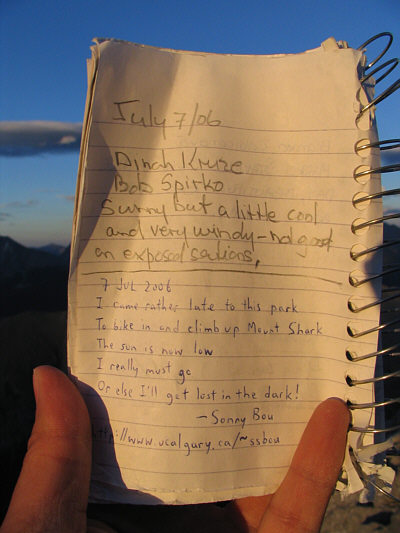 July 7/06
Dinah Kruze
Bob Spirko
Sunny but a little cool
and very windy - not good
on exposed sections.
7 JUL 2006
I came rather late to this park
To bike in and climb up Mount Shark
The sun is now low
I really must go
Or else I'll get lost in the dark!
- Sonny Bou
http://www.ucalgary.ca/~ssbou